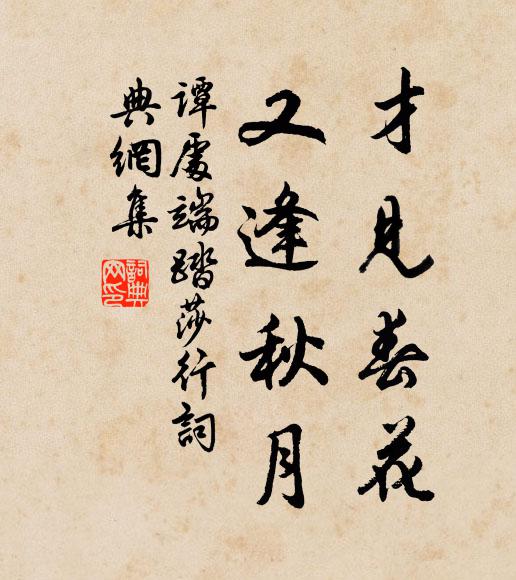 才見春花
又逢秋月
譚處端踏莎行詞
典網集
詞典
网印